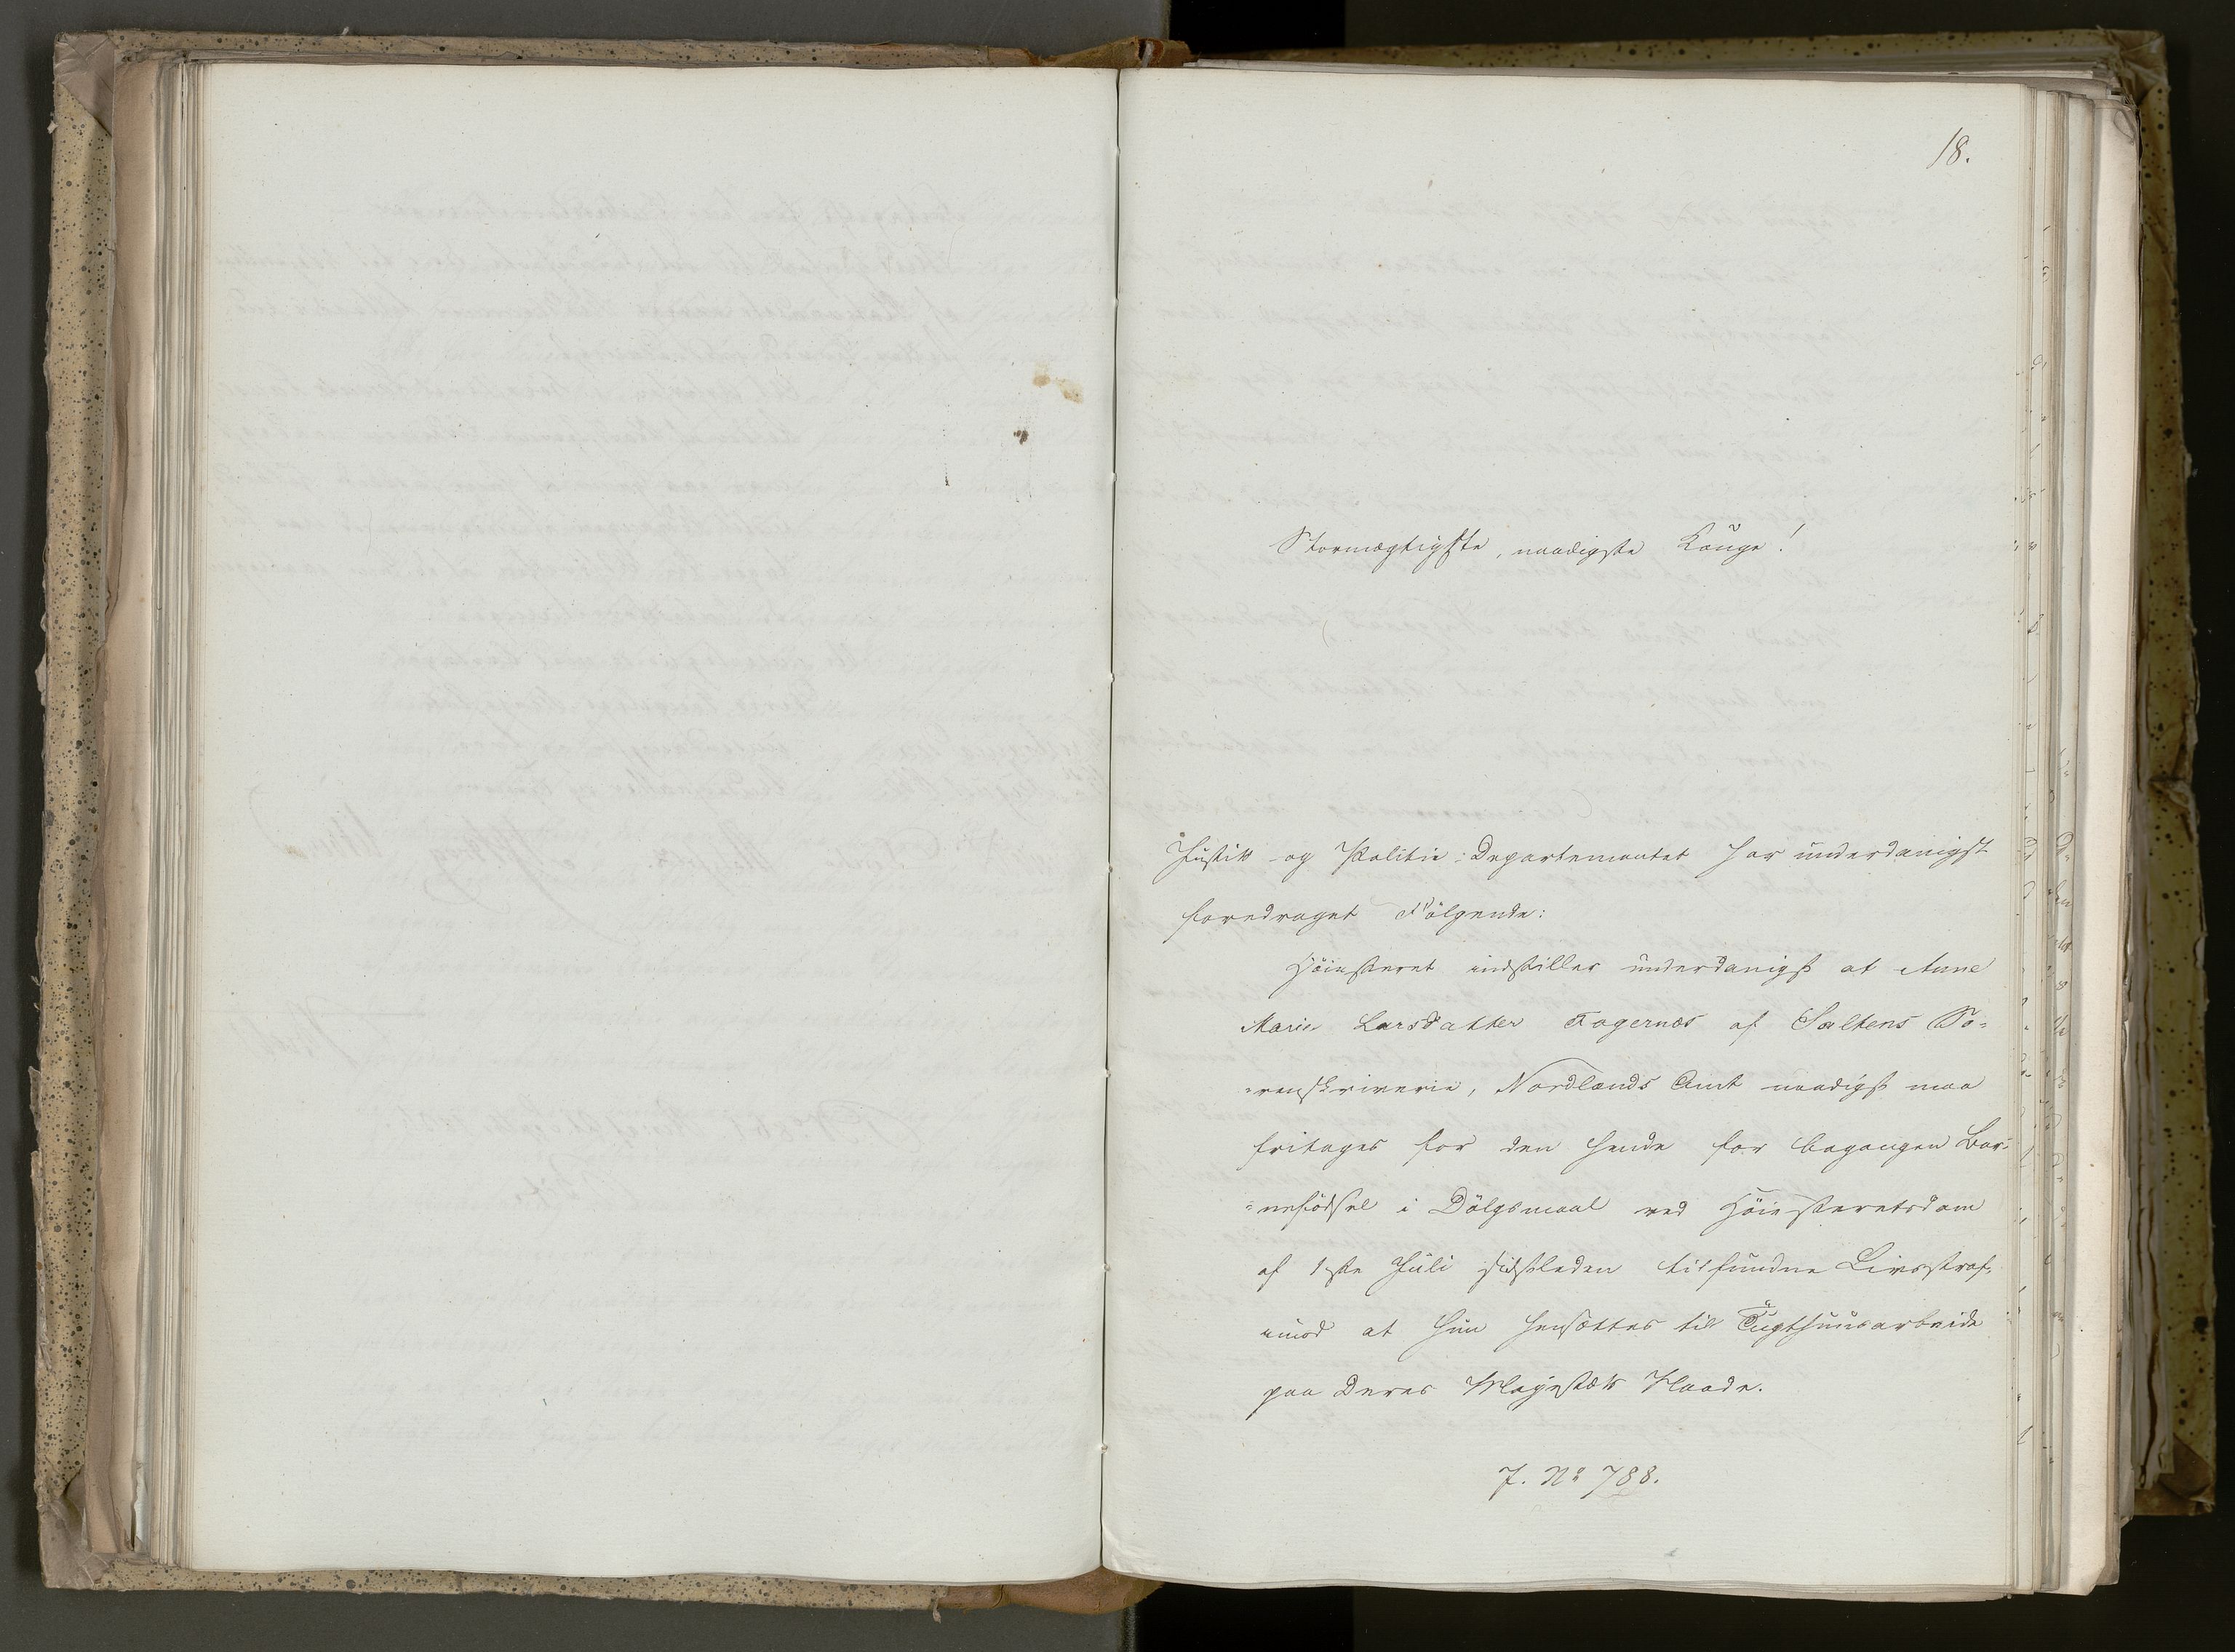 18.
Stormægtigste, naadigste Konge!
Justits- og Politie-Departementet har underdanigst
foredraget Følgende:
Høiesteret indstiller underdanigst at Anne
Marie Larsdatter Fagernæs af Saltens So-
renskriverie, Nordlands Amt naadigst maa
fritages for den hende for begangen Bar-
nefödsel i Dölgsmaal ved Høiesteretsdom
af 1ste Juli sidstleden tilfundne Livsstraf,
imod at hun hensættes til Tugthuusarbeide
paa Deres Majestæts Naade.
J. No 788.